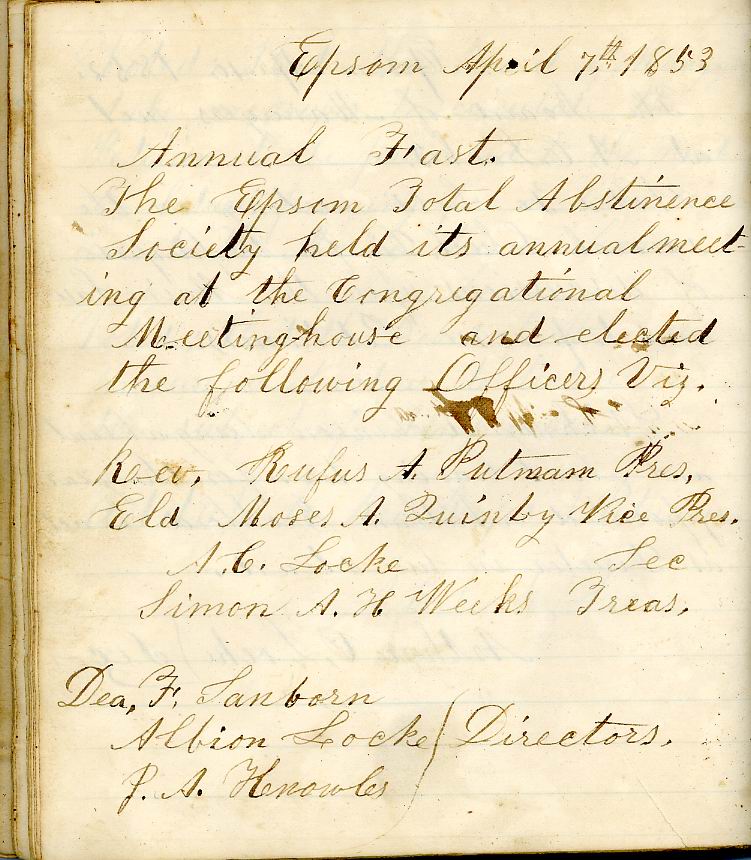 Epsom April 7th. 1853
Annual Fast.
The Epsom Total Abstinence
Society held its annual meet-
ing at the Congregational
Meetinghouse and elected
the following Officers Viz.
Rev. Rufus A. Putnam Pres.
Eld Moses A. Quinby Vice Pres.
A. C. Locke Sec
Simon A. H Weeks Treas.
Dea, F. Sanborn
Albion Locke Directors.
J. A. Knowles